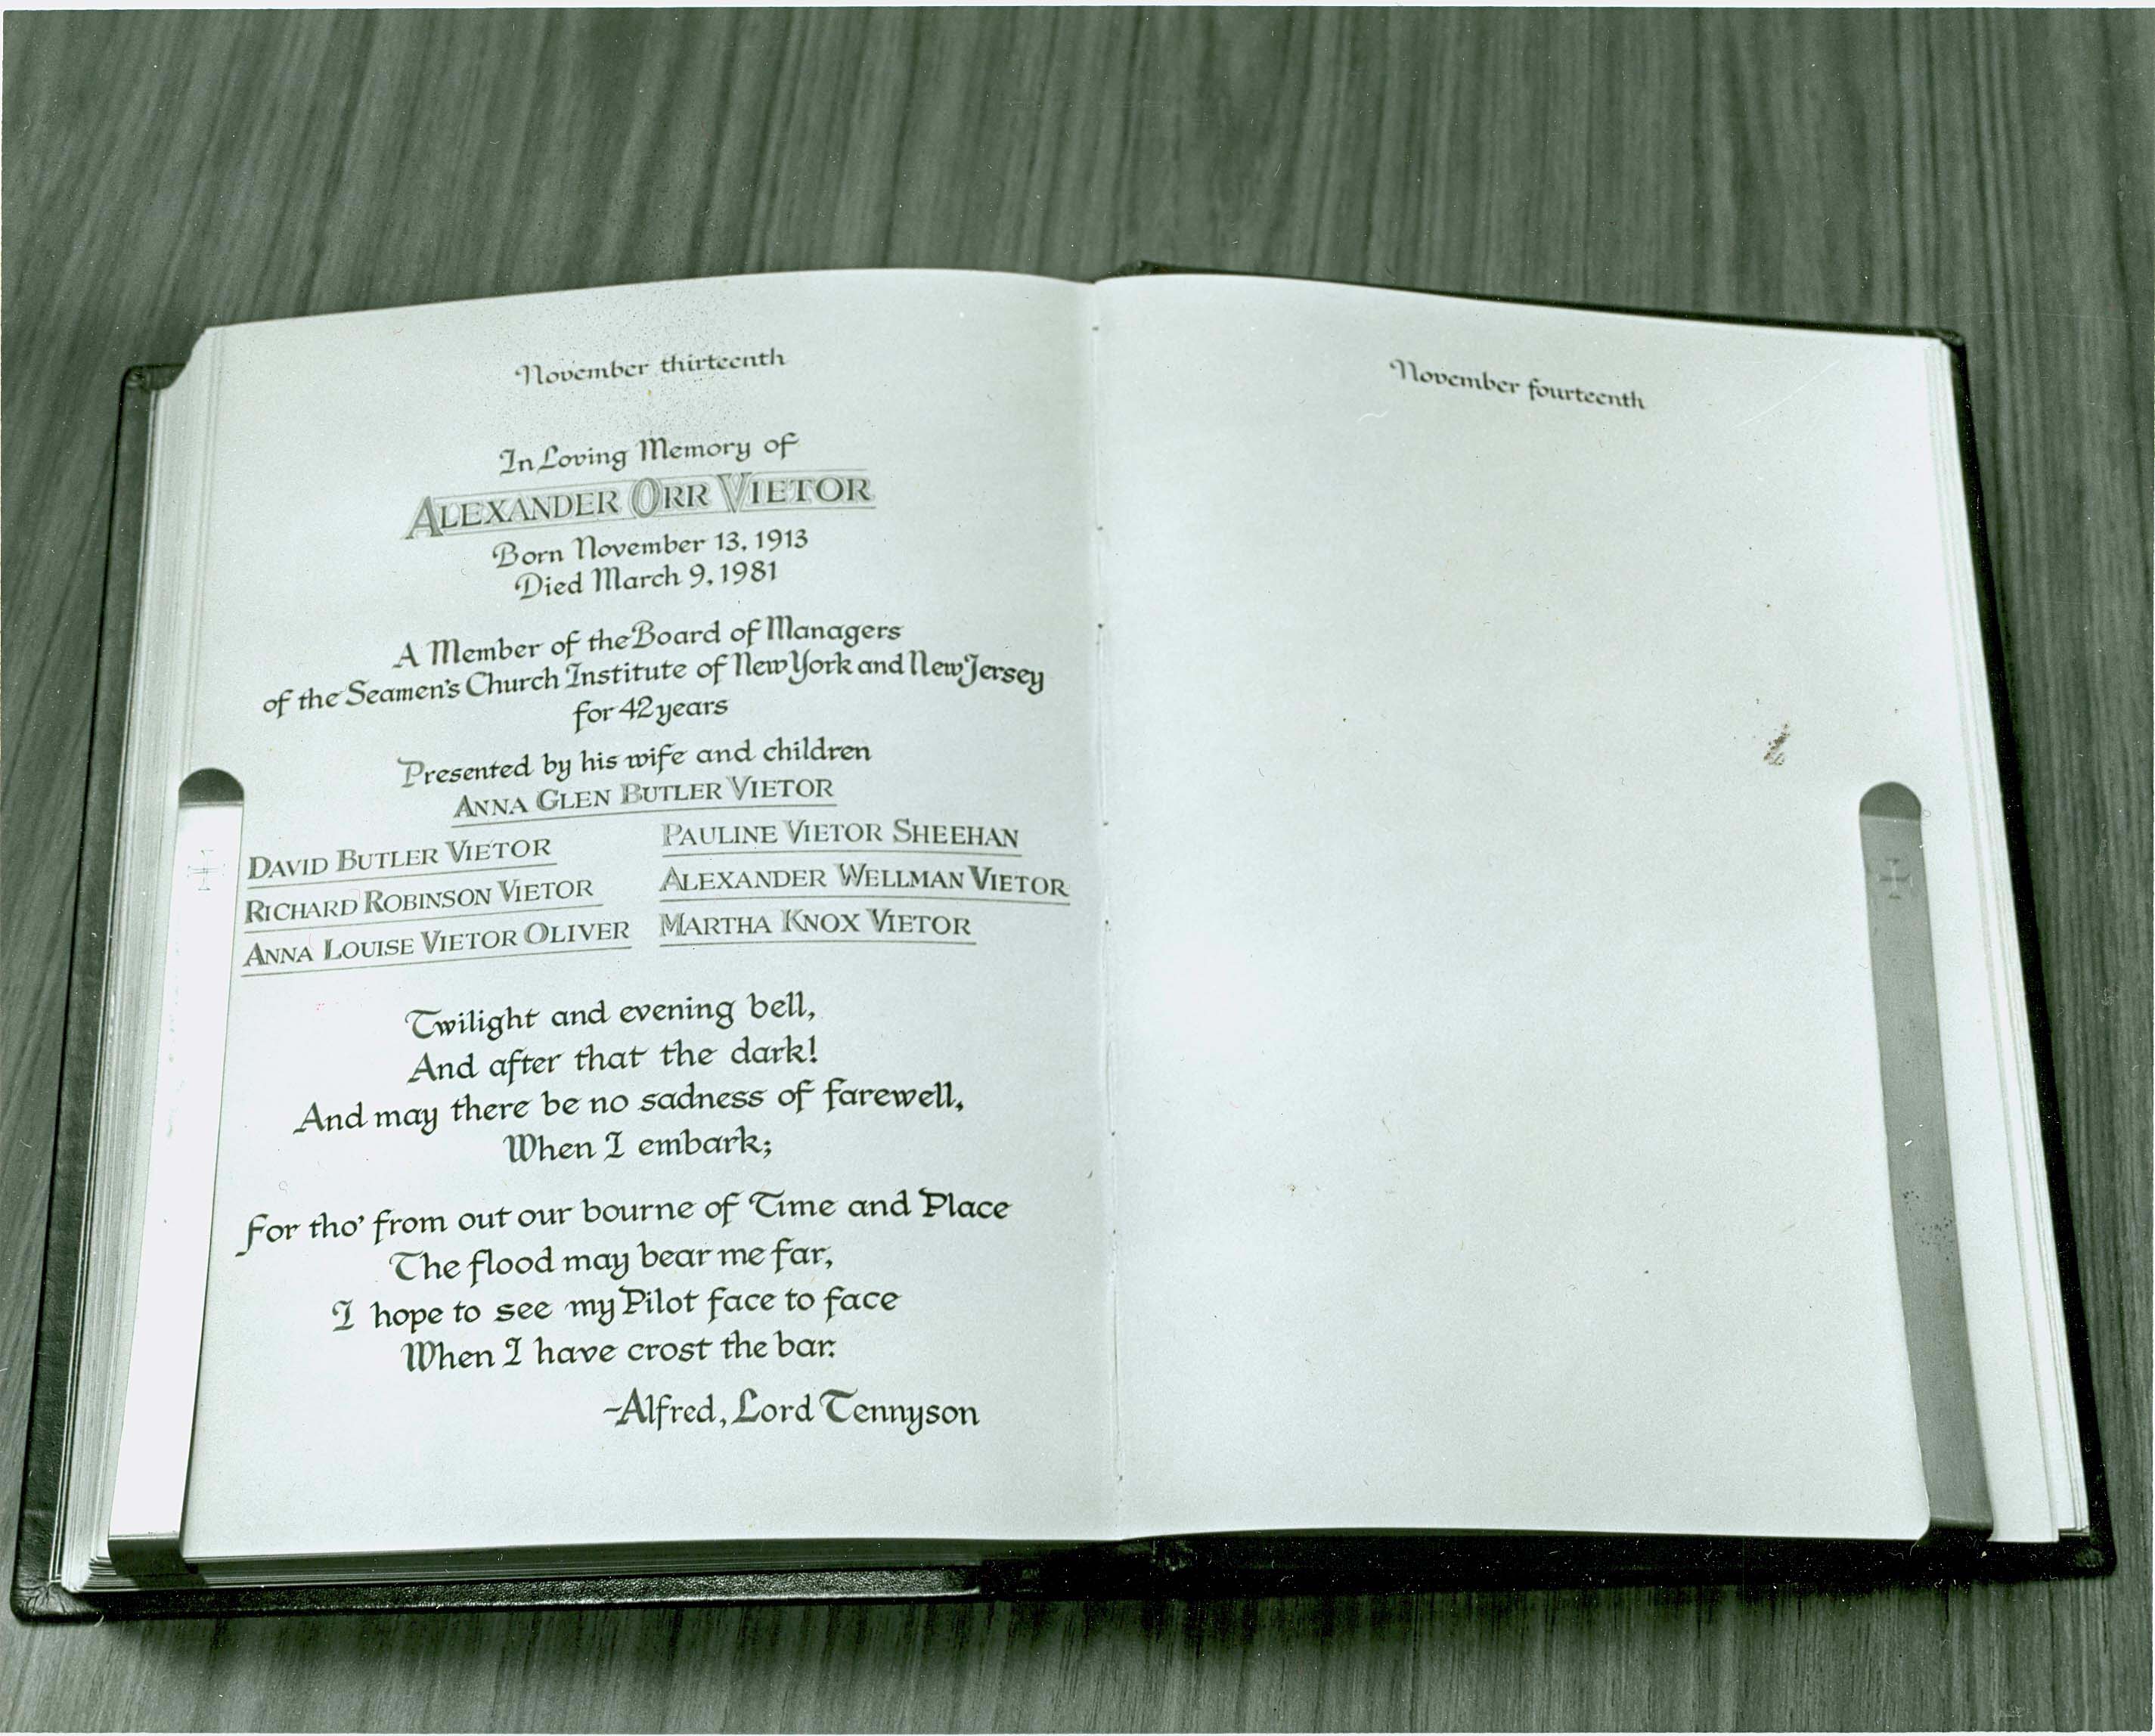 November thirteenth
In Loving Memory of
ALEXANDER ORR VIETOR
Born November 13, 1913
Died March 9, 1981
A Member of the Board of Managers
of the Seamen's Church Institute of New York and New Jersey
for 42 years
Presented by his wife and children
ANNA GLEN BUTLER VIETOR
DAVID BUTLER VIETOR
RICHARD ROBINSON VIETOR
ANNA LOUISE VIETOR OLIVER
PAULINE VIETOR SHEEHAN
ALEXANDER WELLMAN VIETOR
MARTHA KNOX VIETOR
Twilight and evening bell,
And after that the dark!
And may there be no sadness of farewell,
When I embark;
For tho' from out our bourne of Time and Place
The flood may bear me far,
I hope to see my Pilot face to face
When I have crost the bar.
-Alfred, Lord Tennyson
November fourteenth